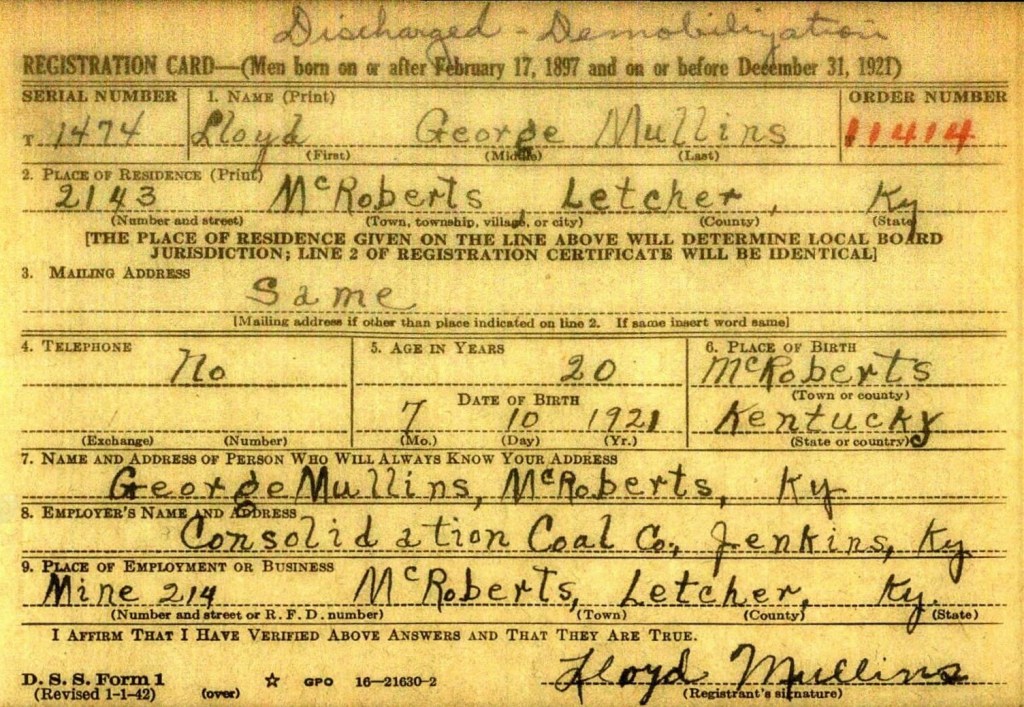 Discharged - Demobilization
REGISTRATION CARD—(Men born on or after February 17, 1897 and on or before December 31, 1921)
SERIAL NUMBER 1. NAME (Print) ORDER NUMBER
T 1474 Lloyd George Mullins 11414
(First) (Middle) (Last)
2. PLACE OF RESIDENCE (Print)
2143 McRoberts, Letcher, Ky
(Number and street) (Town, township, village, or city) (County) (State)
[THE PLACE OF RESIDENCE GIVEN ON THE LINE ABOVE WILL DETERMINE LOCAL BOARD
JURISDICTION; LINE 2 OF REGISTRATION CERTIFICATE WILL BE IDENTICAL]
3. MAILING ADDRESS
Same
[Mailing address if other than place indicated on line 2. If same insert word same]
4. TELEPHONE 5. AGE IN YEARS 6. PLACE OF BIRTH
No 20 McRoberts
DATE OF BIRTH (Town or county)
7 10 1921 Kentucky
(Exchange) (Number) (Mo.) (Day) (Yr.) (State or country)
7. NAME AND ADDRESS OF PERSON WHO WILL ALWAYS KNOW YOUR ADDRESS
George Mullins, McRoberts, Ky
8. EMPLOYER'S NAME AND ADDRESS
Consolidation Coal Co., Jenkins, Ky
9. PLACE OF EMPLOYMENT OR BUSINESS
Mine 214 McRoberts, Letcher, Ky.
(Number and street or R. F. D. number) (Town) (County) (State)
I AFFIRM THAT I HAVE VERIFIED ABOVE ANSWERS AND THAT THEY ARE TRUE.
Lloyd Mullins
D. S. S. Form 1
(Revised 1-1-42) (over) ☆ GPO 16—21630-2 (Registrant's signature)